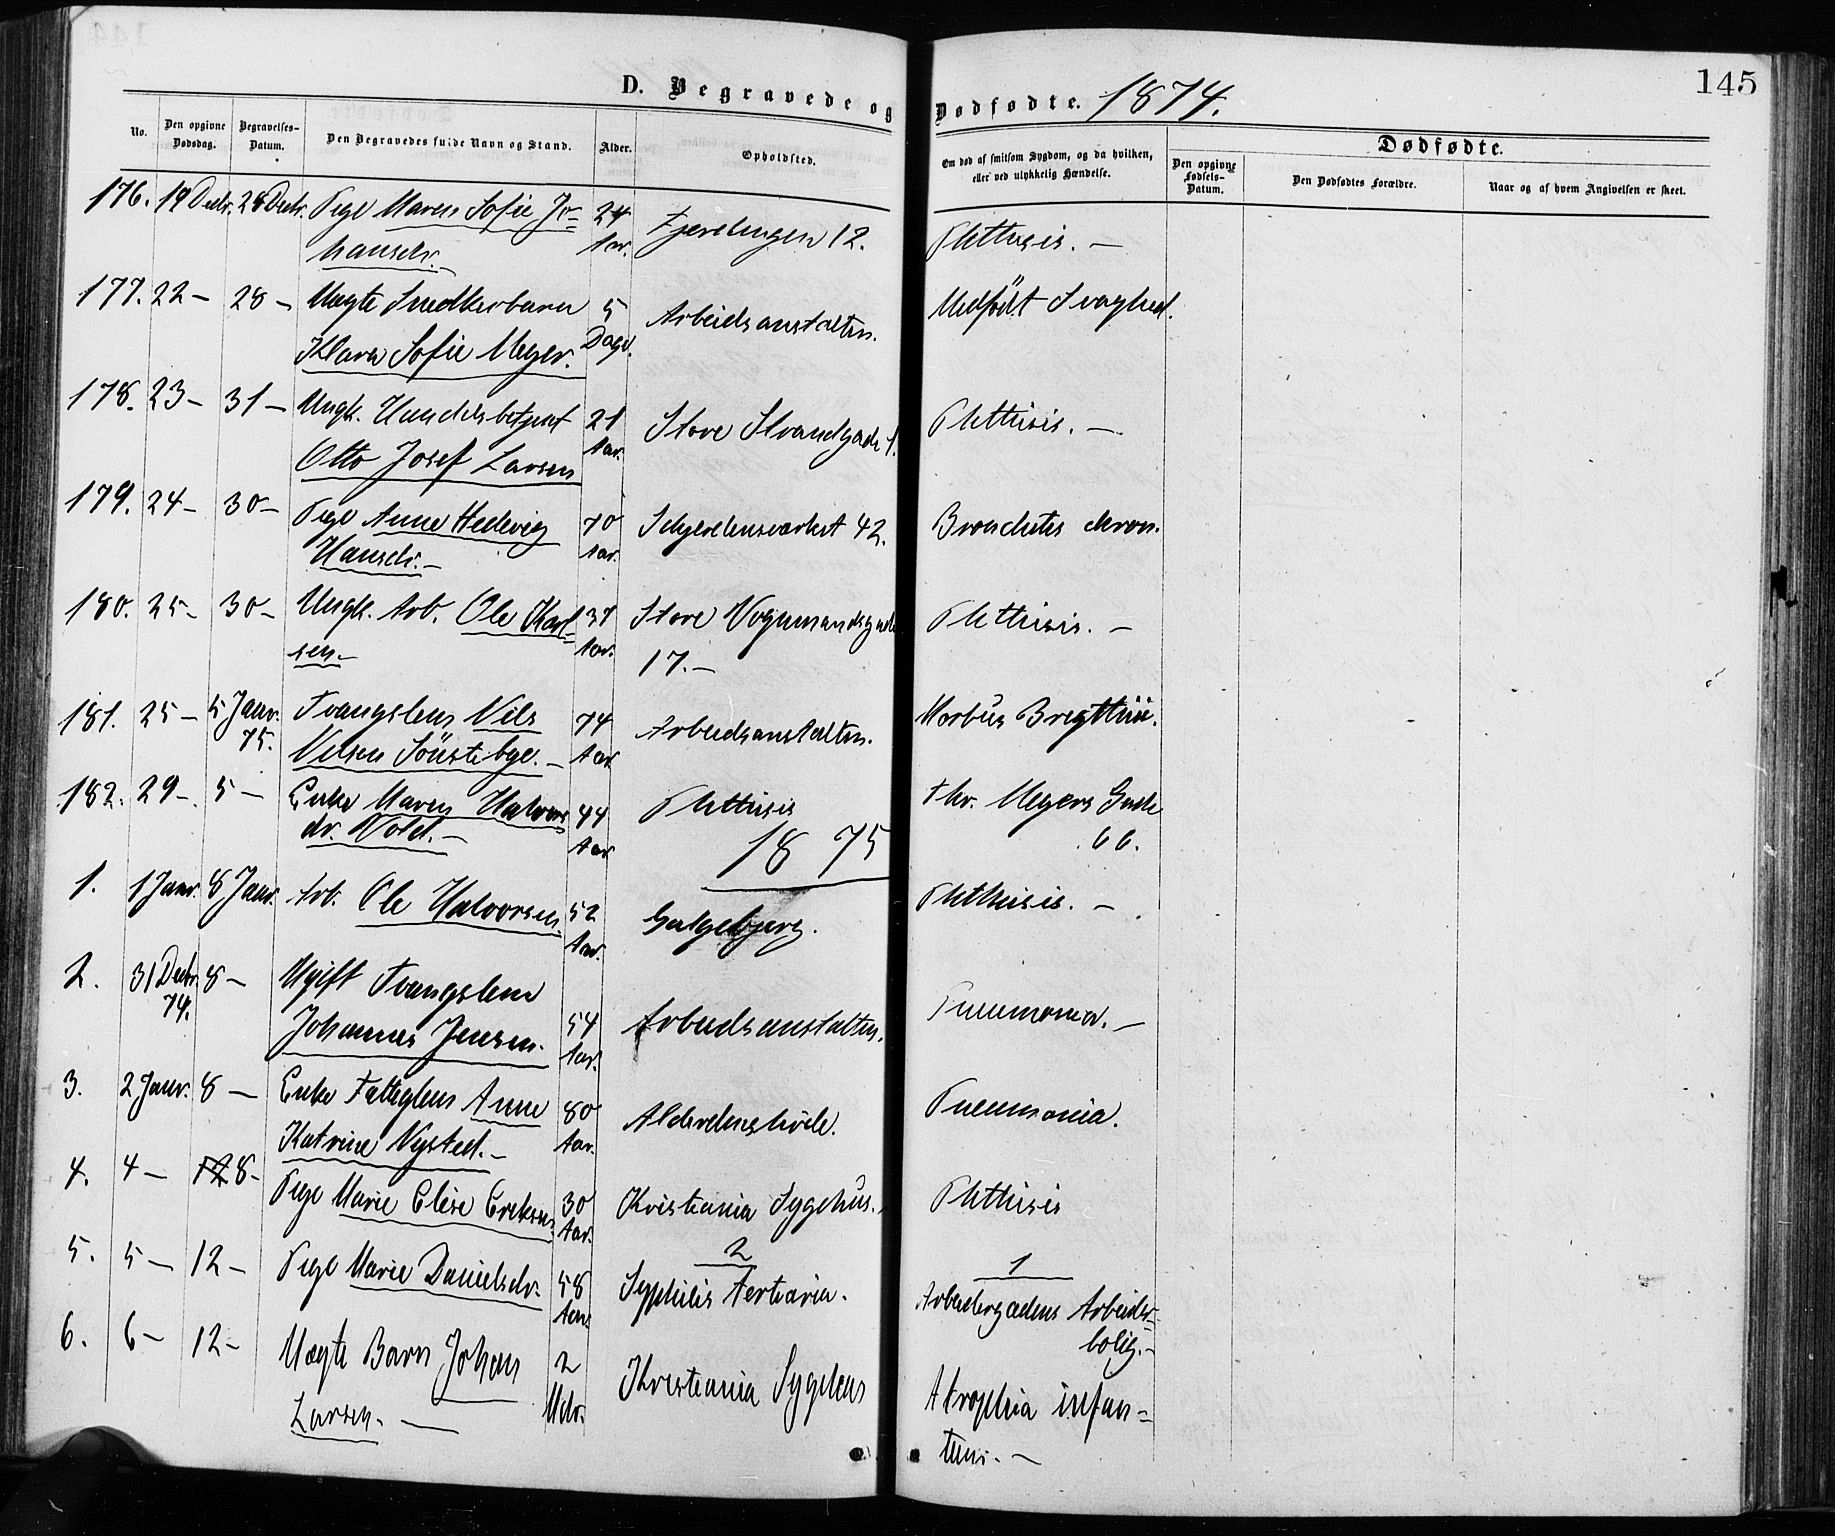 145
D. Begravede og Dødfødte. 1874.
No.
Den opgivne Dødsdag.
Begravelses-Datum.
Den Begravedes fulde Navn og Stand.
Alder.
Opholdsted.
Om død af smitsom Sygdom, og da hvilken, eller ved ulykkelig Hændelse.
Dødfødte.
Den opgivne Fødsels-Datum.
Den Dødfødtes Forældre.
Naar og af hvem Angivelsen er skeet.
176. 19 Decbr. 28 Decbr. Pige Maren Sofie Jo= 24 Aar. 12. Phthisis. —
hansdr. —
177. 22 — 28 — Uægte Snedkerbarn 5 Arbeidsanstalten. Medfödt Svaghed.
Klara Sofie Meyer. Dage.
178. 23 — 31 — Ungk. Handelsbetjent 21 Aar. Store Strandgade 1. Phthisis. —
Otto Josef Larsen
179. 24 — 30 — Pige Anne Hedevig 70 Aar. 42. Bronchites chron.
Hansdr. —
180. 25 — 30 — Ungk. Arb. Ole Karl= 37 Aar. Store Vognmandsgade Phthisis. —
sen — 17. —
181. 25 — 5 Janr. 75. Tvangslem Nils 74 Aar Arbeidsanstalten. Morbus Brigthii.
Nilsen Sönsteby. —
182. 29 — 5 — Enke Maren Halvors 44 Aar Phthisis Thv. Meyers Gade
dr. Vold. — 66.
1875
1. 1 Janr. 8 Janr. Arb. Ole Halvorsen 52 Aar. Galgebjerg. Phthisis. —
2. 31 Decbr 74. 8 — Ugift Tvangslem
Johannes Jensen. 54 Aar. Arbeidsanstalten. Pneumonia. —
3. 2 Janr. 8 — Enke Fattiglem Anne 80 Aar. Alderdomshvile. Pneumonia.
Katrine Nysted. —
4. 4 — 8 — Pige Marie Elise Eriksen 30 Aar. Kristiania Sygehus. Phthisis
5. 5 — 12 — Pige Marie Danielsdr. 58 Aar 2 Syphilis tertiaria. 1 Arbeidergadens Arbeider=
bolig. —
6. 6 — 12 — Uægte Barn Johan 2 Mdr. Kristiania Sygehus Atrophia infan=
Larsen. — tum. —